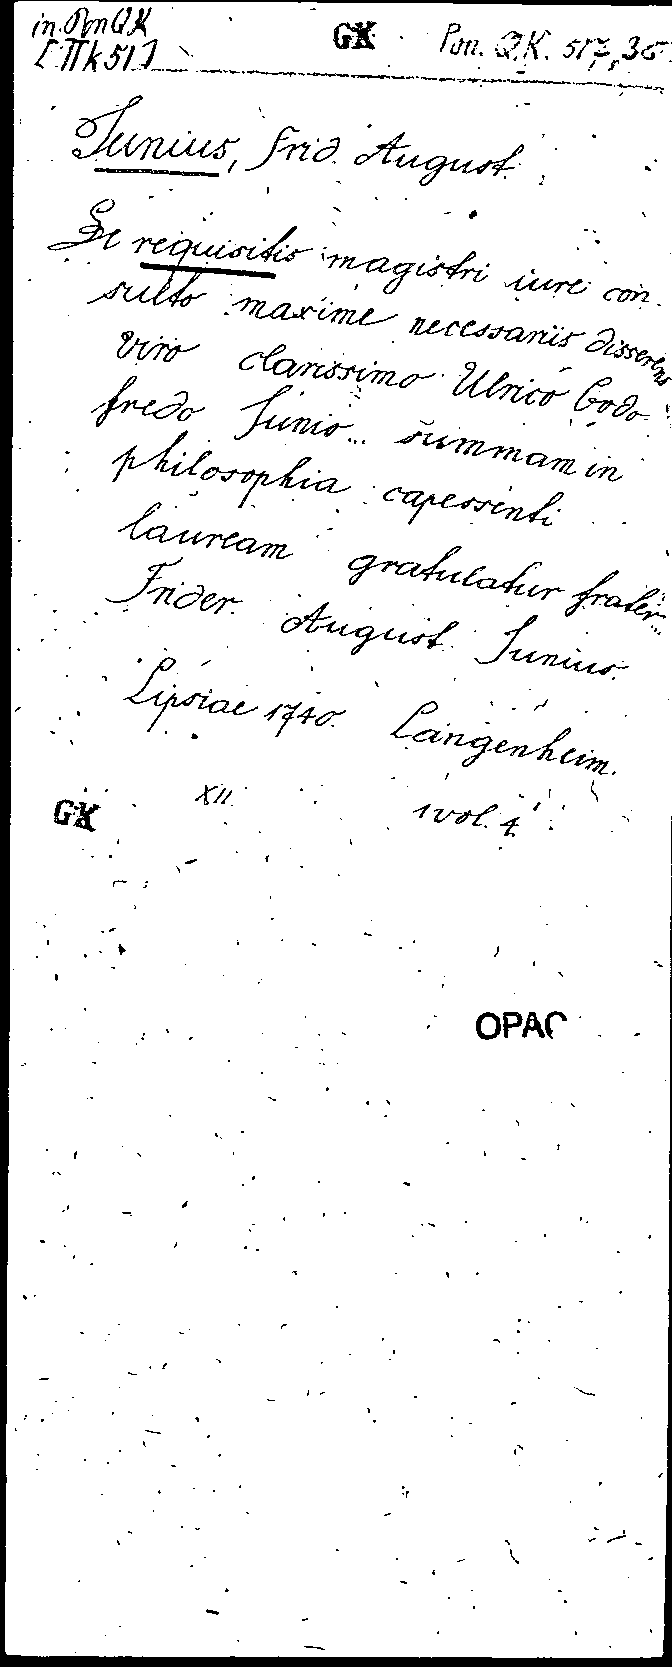 in Pon QK GK Pon. QK. 517,35
[Πk51]
Junius, Frid. August.
De requisitis magistri iure con-
sulto maxime necessariis disserens
viro clarissimo Ulrico Godo-
fredo Junio... summam in
philosophia capessenti
lauream gratulatur frater...
Frider. August. Junius.
Lipsiae 1740. Langenheim.
XII 1 vol. 4°
GK
OPAC